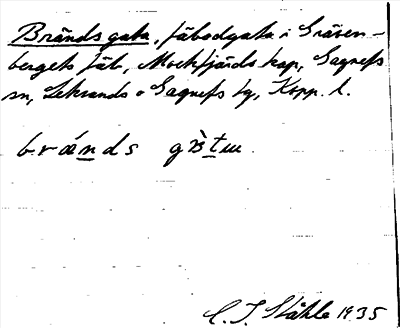 Brändsgata, fäbodgata i Gräsen-
bergets fäb, Mockfjärds kap, Gagnefs
sn, Leksands o Gagnefs tg, Kopp. l.
brän̲ds gàt̲u
C. I. Ståhle 1935